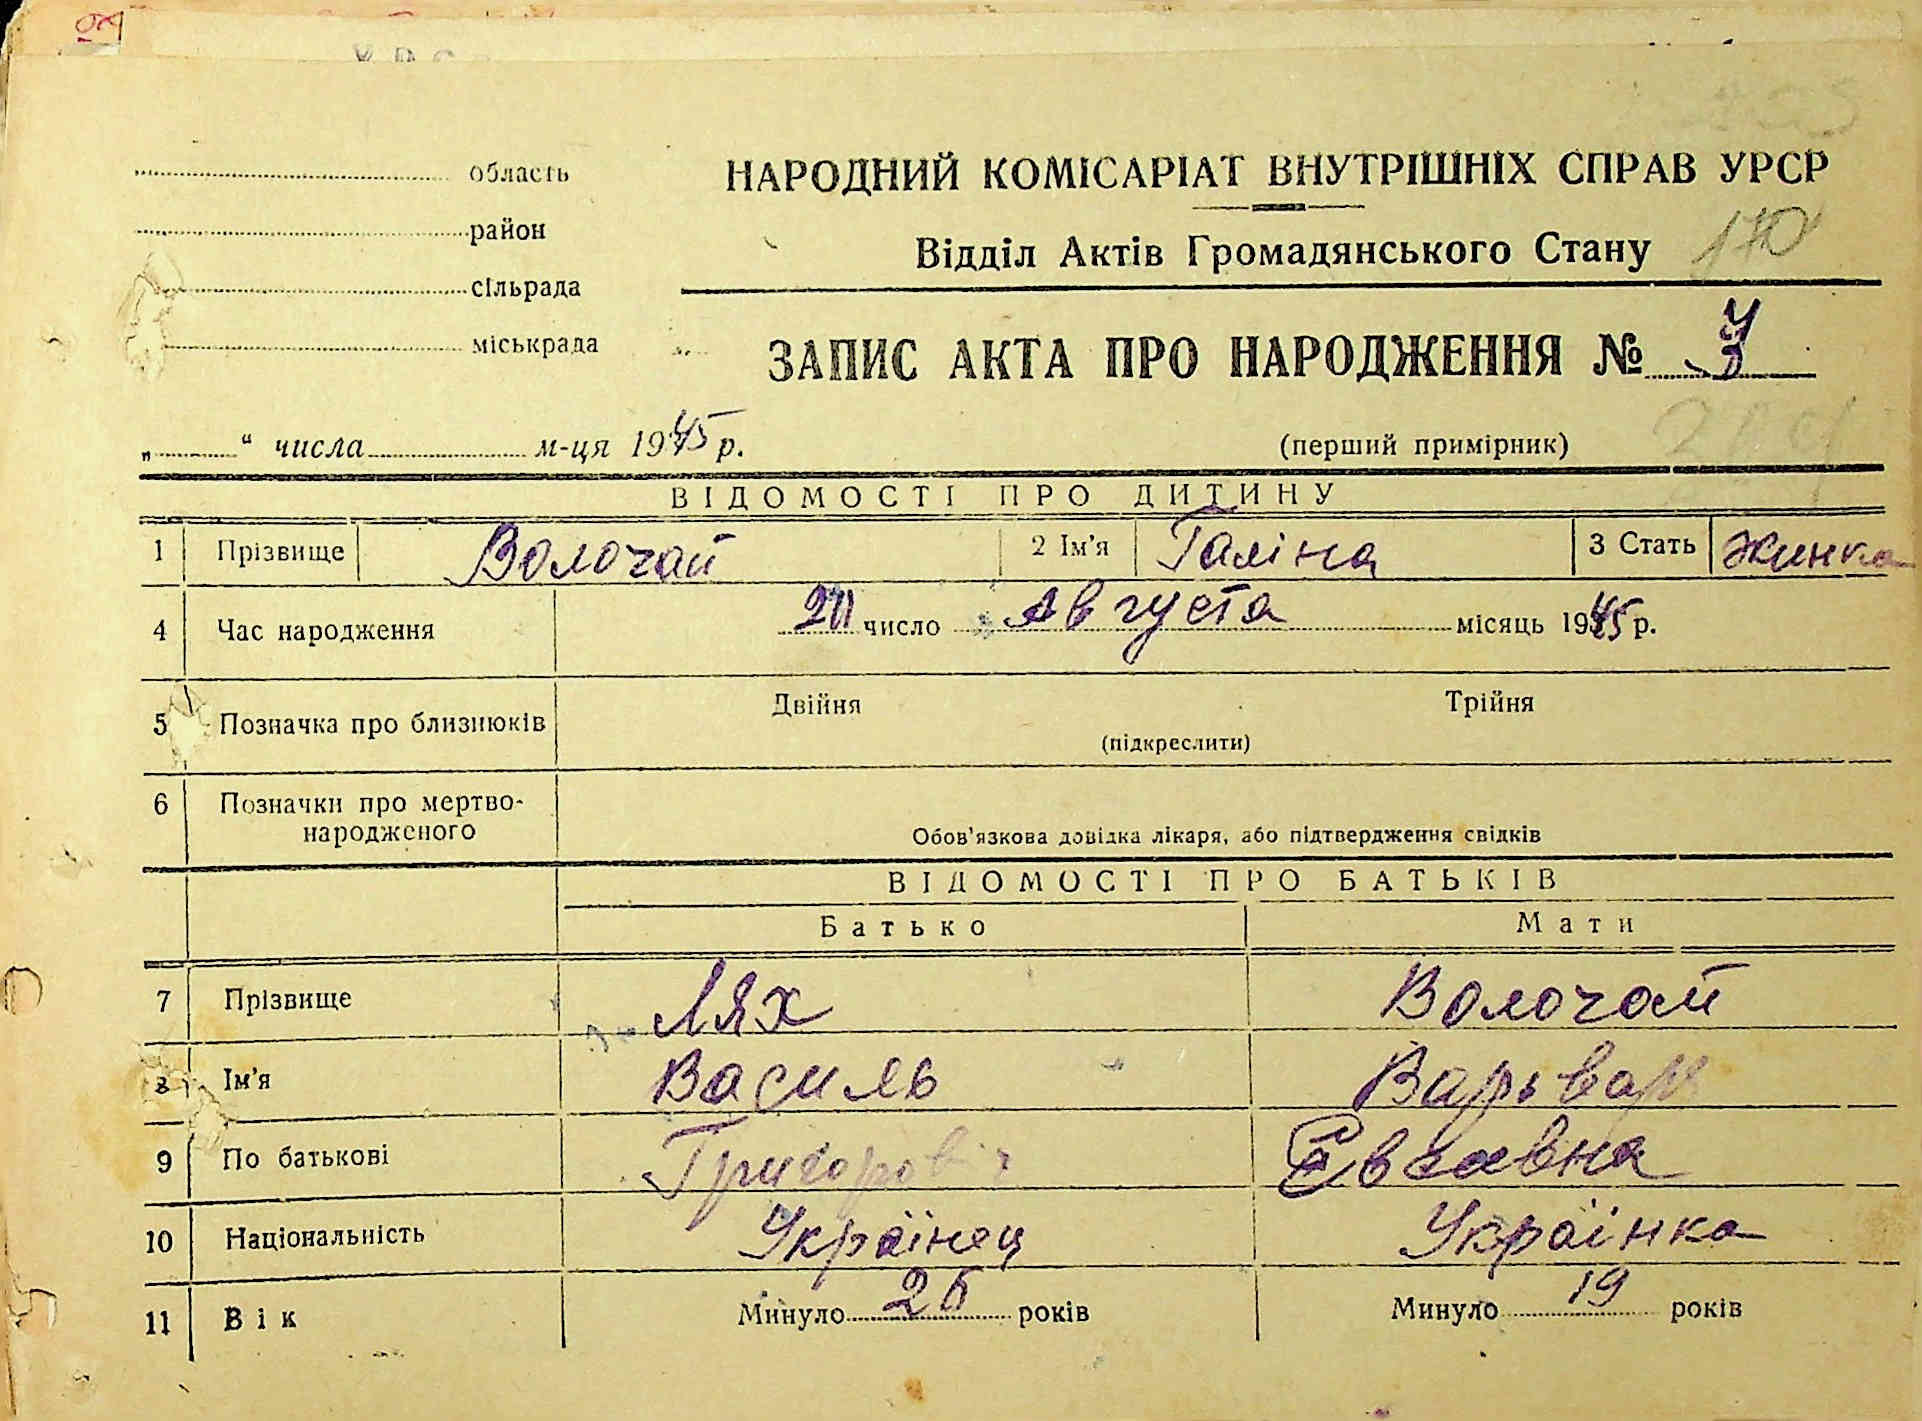 область
НАРОДНИЙ КОМІСАРІАТ ВНУТРІШНІХ СПРАВ УРСР
район
Відділ Актів Громадянського Стану 170
сільрада
міськрада
ЗАПИС АКТА ПРО НАРОДЖЕННЯ №
„ “ числа м-ця 1945 р. (перший примірник)
ВІДОМОСТІ ПРО ДИТИНУ
1 Прізвище Волочай 2 Ім'я Галіна 3 Стать Жинка
4 Час народження число Августа місяць 1945 р.
5 Позначка про близнюків Двійня Трійня
(підкреслити)
6 Позначки про мертво-
народженого
Обов'язкова довідка лікаря, або підтвердження свідків
ВІДОМОСТІ ПРО БАТЬКІВ
Батько Мати
7 Прізвище Лях Волочай
8 Ім'я Василь Варьвар
9 По батькові Григоровіч
10 Національність Украінец Украінка
11 Вік Минуло 26 років Минуло 19 років